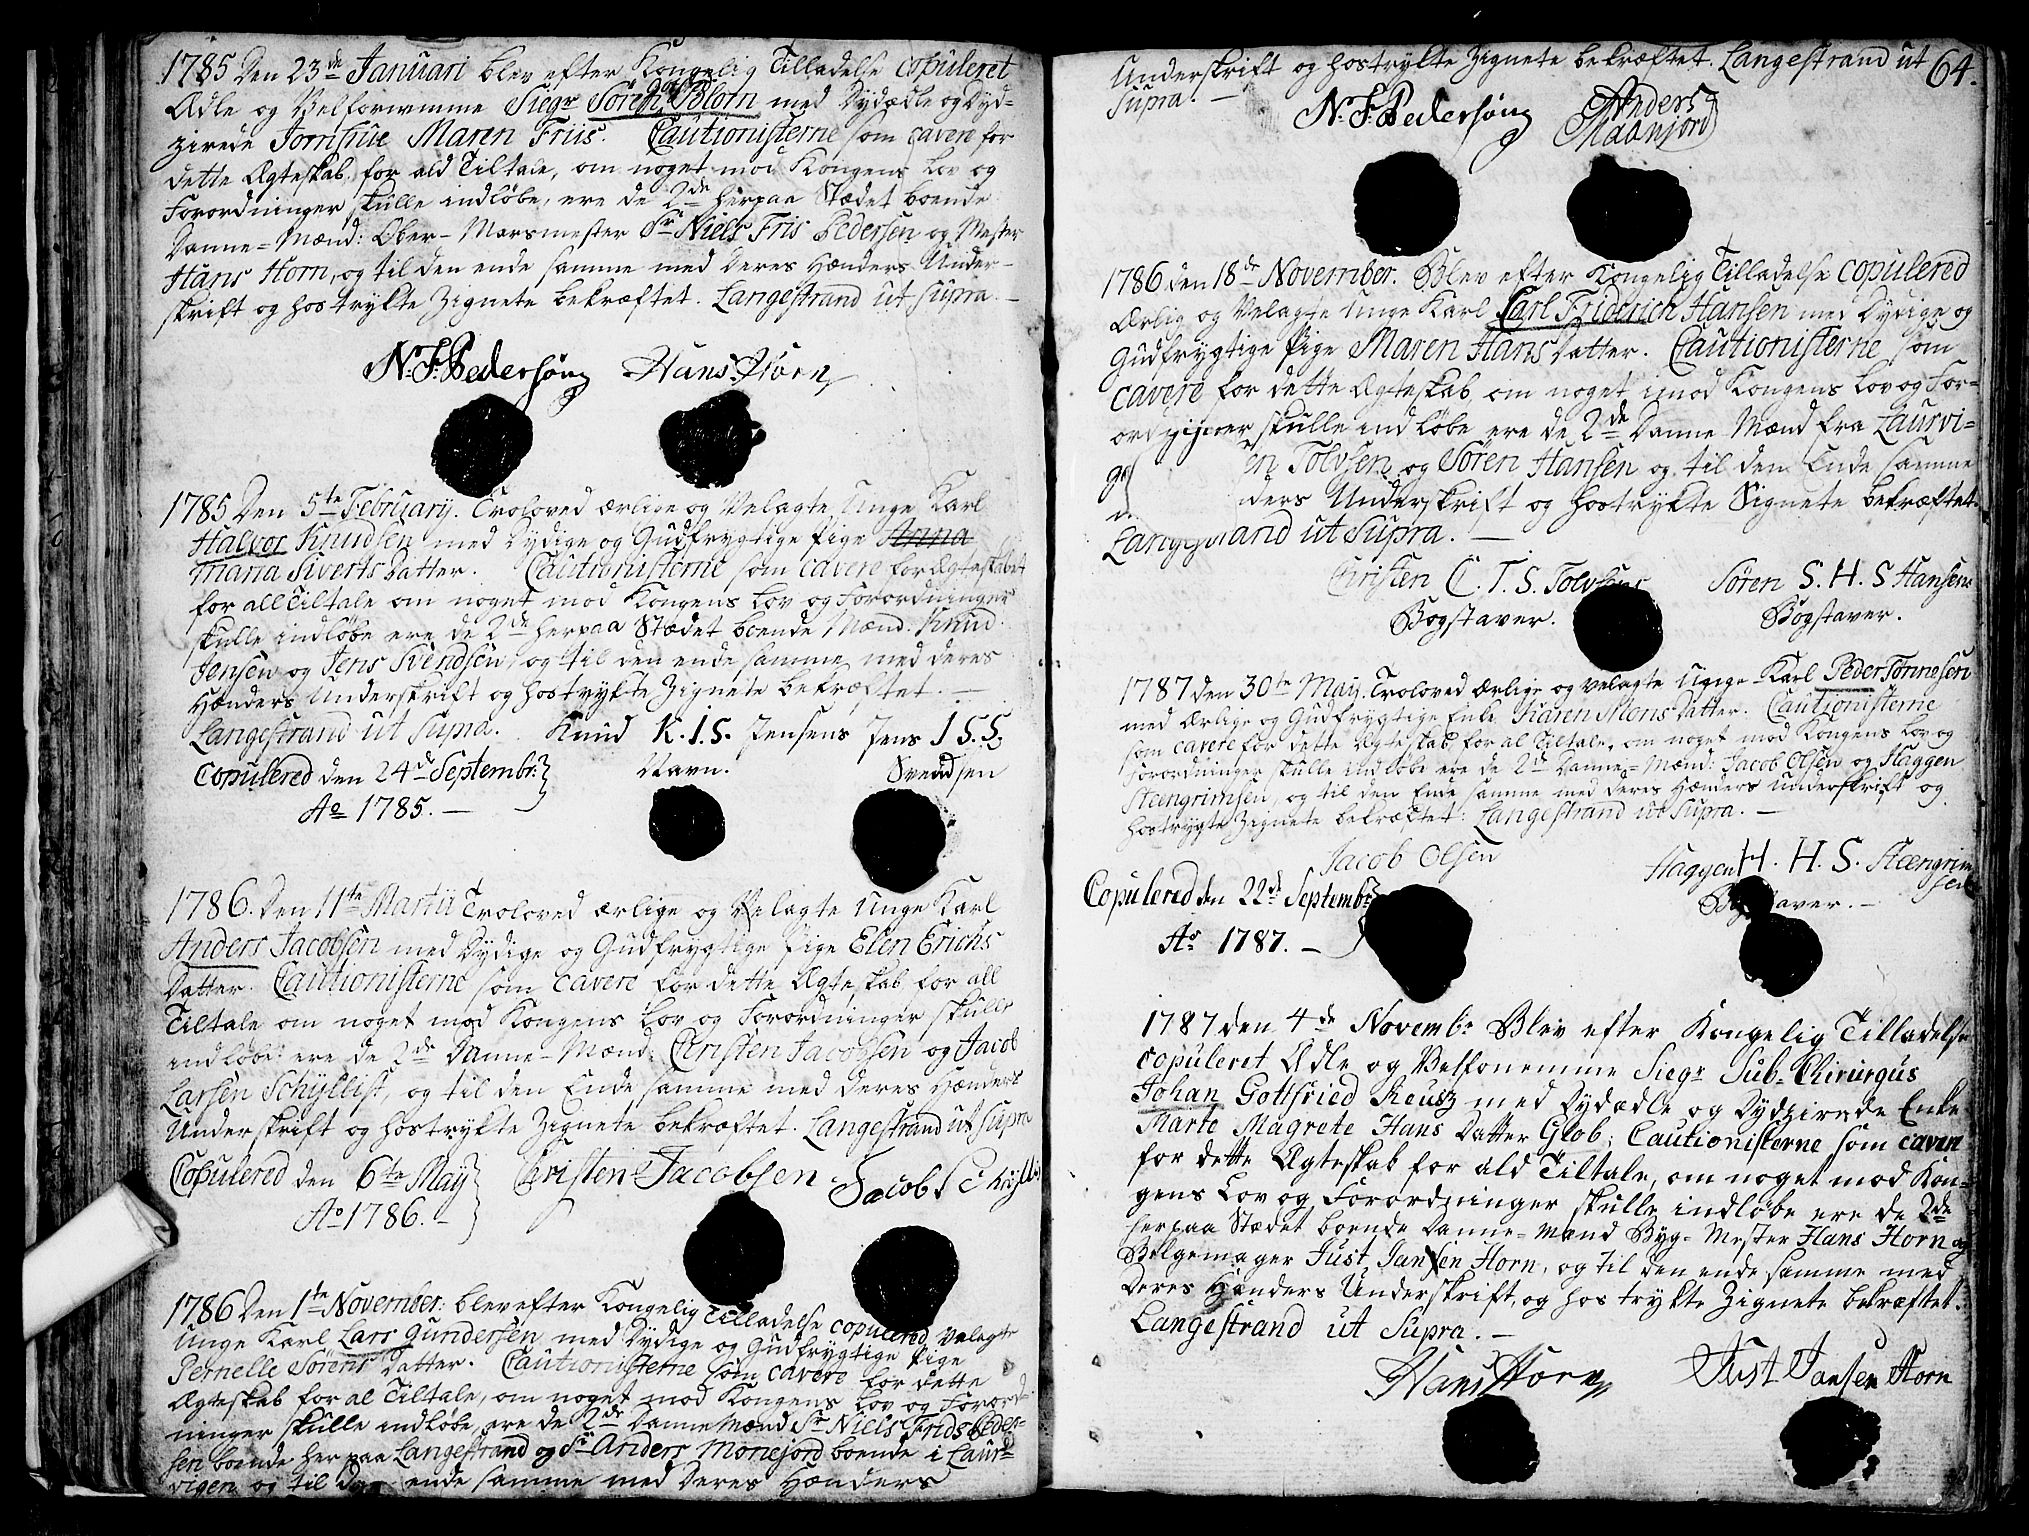 1785 Den 23de Januari blev efter Kongelig Tilladelse Copuleret
Ædle og Velfornemme Siegr Sören Blom med Dydædle og Dyd-
zirede Jomfrue Maren Friis. Cautionisterne som cavere for
dette Ægteskab for ald Tiltale, om noget mod Kongens Lov og
Forordninger skulle indløbe, ere de 2de herpaa Stædet boende
Danne-Mænd: Ober-Marsmester Sr Niels Fris Pedersen og Mester
Hans Horn, og til den ende samme med deres Hænders Under-
skrift og hostrykte Zignete bekræftet. Langestrand ut Supra.
N. F. Pedersøn Hans Horn
1785 Den 5te February. Troloved ærlige og Velagte Unge Karl
Halvor Knudsen med Dydige og Gudfrygtige Pige Anna
Maria Siverts Datter. Cautionisterne som cavere for Ægteskabet
for all Tiltale om noget mod Kongens Lov og Forordninger
skulle indløbe ere de 2de herpaa Stædet boende Mænd. Knud
Jensen og Jens Svendsen, og til den ende samme med deres
Hænders Underskrift og hostrykte Zignete bekræftet.
Langestrand ut Supra. Knud K.I.S. Jensens Jens I S.S.
Copulered den 24de Septembr. Navn. Svendsen
Ao 1785.
1786. Den 11te Martii Troloved ærlige og Velagte Unge Karl
Anders Jacobsen med Dydige og Gudfrygtige Pige Elen Erichs
Datter. Cautionisterne som cavere for dette Ægteskab for all
Tiltale om noget mod Kongens Lov og Forordninger skulle
indløbe ere de 2de Danne-Mænd: Christen Jacobsen og Jacob
Larsen Schyllist, og til den Ende samme med deres Hænders
Underskrift og hostrykte Zignete bekræftet. Langestrand ut Supra
Copulered den 6te May Christen Jacobsen Jacob
Ao 1786.
1786 Den 1te November: blev efter Kongelig Tilladelse copulered Velagte
Unge Karl Lars Gundersen med Dydige og Gudfrygtige Pige
Pernelle Sörens Datter. Cautionisterne som cavere for dette
Ægteskab for al Tiltale, om noget mod Kongens Lov og Forord-
ninger skulle indløbe, ere de 2de Danne Mænd Sr Niels Frids Peder-
sen boende her paa Langestrand og Sr Anders Monejord boende i Laur-
vigen og til Den ende samme med Deres Hænders
64.
Underskrift og hostrykte Zignete bekræftet. Langestrand ut
Supra.
N. F. Pedersøn Anders
Maanjord
1786 den 18de November. Blev efter Kongelig Tilladelse copulered
Ærlig og Velagte Unge Karl Carl Friderich Hansen med Dydige og
Gudfrygtige Pige Maren Hans Datter. Cautionisterne som
cavere for dette Ægteskab, om noget imod Kongens Lov og For-
ordninger skulle indløbe ere de 2de Danne Mænd fra Laurvi-
en Tolvsen og Sören Hansen og til den Ende samme
nders Underskrift og hostrykte Signete bekræftet.
Langestrand ut Supra.
Christen C. T. S. Tolvsens Sören S. H. S Hansens
Bogstaver. Bogstaver.
1787 den 30te May. Troloved ærlige og velagte Unge Karl Peder Tönnesen
med ærlige og Gudfrygtige Enke Karen Mons Datter. Cautionisterne
som cavere for dette Ægteskab for al Tiltale, om noget mod Kongens Lov og
Forordninger skulle indløbe ere de 2de Danne-Mænd: Jacob Olsen og Haggen
Steengrimsen, og til den Ende samme med deres Hænders underskrift og
hostrygte Zignete bekræftet: Langestrand ut Supra.
Jacob Olsen Haggen H. H. S. Steengrim
sen
Copulered den 22de Septembr. Bogstaver.
Ao 1787.
1787 den 4de Novembr Blev efter Kongelig Tilladelse
copuleret Ædle og Velfonemme Siegr Sub-Chirurgus
Johan Gottfried Reusz med Dydædle og Dydzirede Enke
Marte Magrete Hans Datter Glob; Cautionisterne som caven
for dette Ægteskab for ald Tiltale, om noget mod Kon-
gens Lov og Forordninger skulle indløbe ere de 2de
herpaa Stædet boende Danne-Mænd Byg-Mester Hans Horn og
Belgemager Just Jansen Horn, og til den ende samme med
Deres Hænders Underskrift, og hos trykte Zignete bekræftet.
Langestrand ut Supra.
Hans Horn Just Jansen Horn